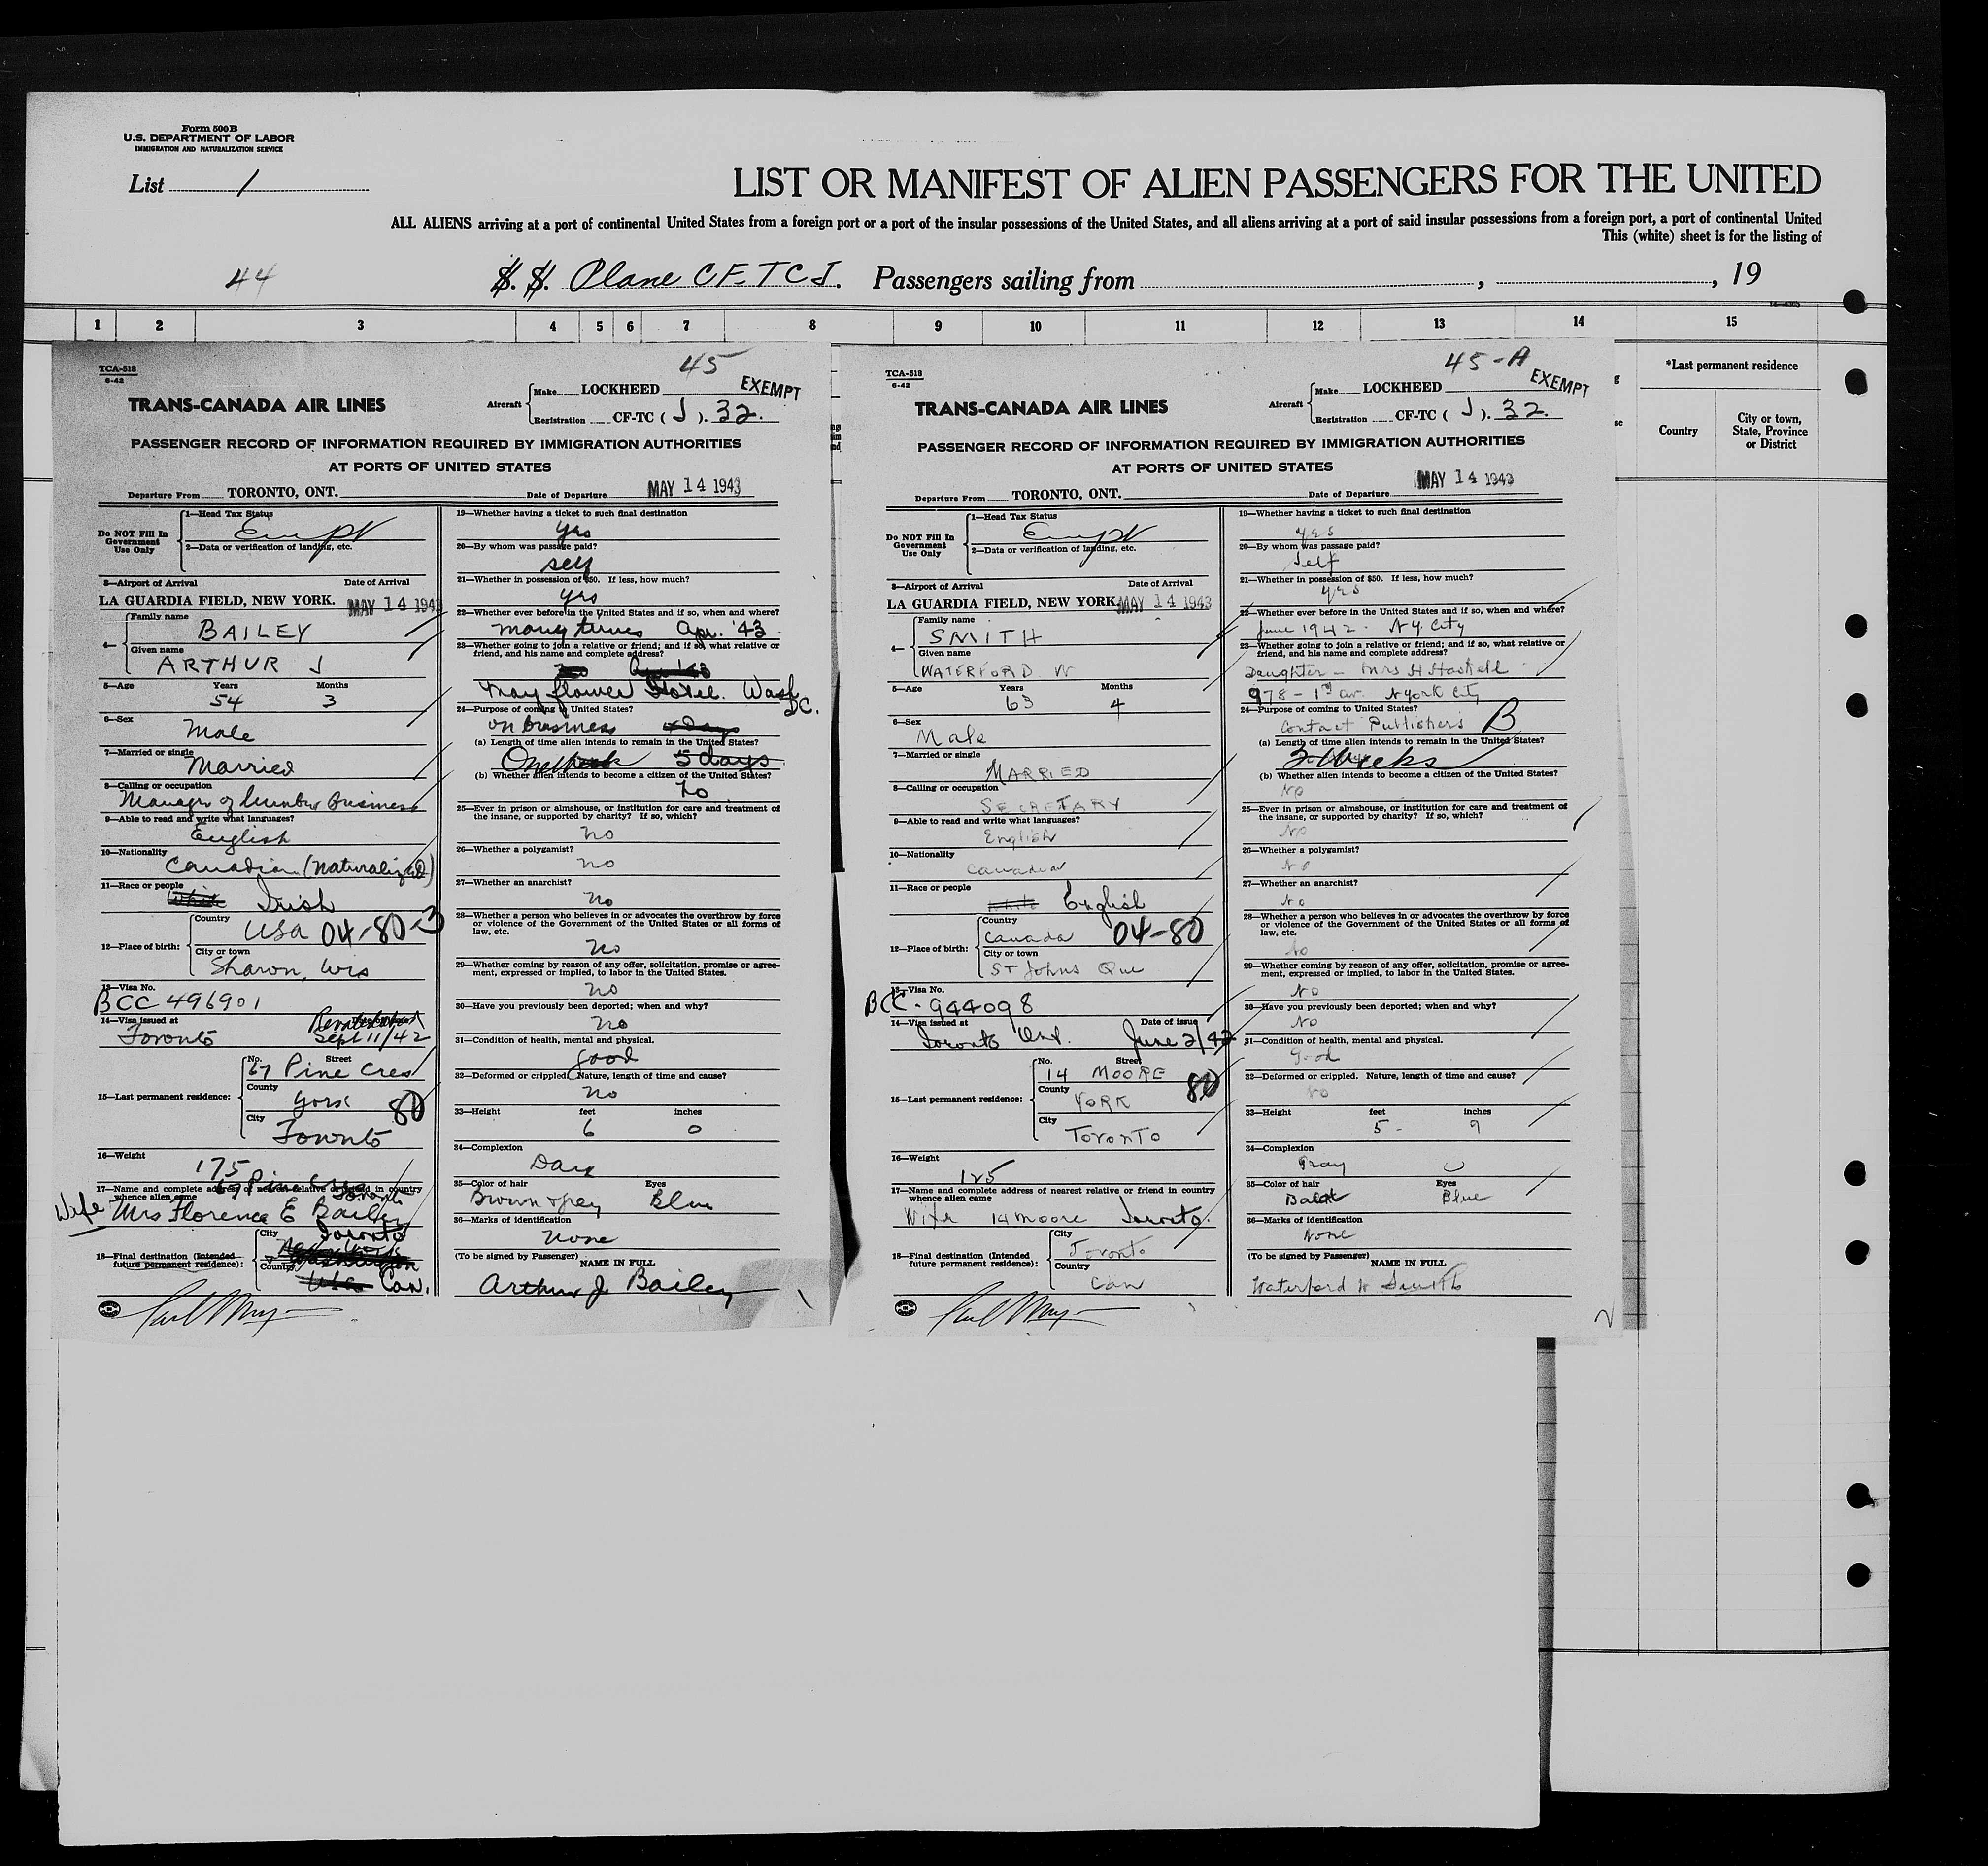 Form 500B
U.S. DEPARTMENT OF LABOR
IMMIGRATION AND NATURALIZATION SERVICE
List 1
LIST OR MANIFEST OF ALIEN PASSENGERS FOR THE UNITED
ALL ALIENS arriving at a port of continental United States from a foreign port or a port of the insular possessions of the United States, and all aliens arriving at a port of said insular possessions from a foreign port, a port of continental United
This (white) sheet is for the listing of
44
S. S. Plane CF-TCJ. Passengers sailing from , , 19
1 2 3 4 5 6 7 8 9 10 11 12 13 14 15
*Last permanent residence
Country
City or town, State, Province or District
TCA-518
6-42
45
EXEMPT
TRANS-CANADA AIR LINES
Aircraft
Make LOCKHEED
Registration CF-TC ( J ). 32.
PASSENGER RECORD OF INFORMATION REQUIRED BY IMMIGRATION AUTHORITIES
AT PORTS OF UNITED STATES
Departure From TORONTO, ONT. Date of Departure MAY 14 1943
Do NOT Fill In Government Use Only
1—Head Tax Status
2—Data or verification of landing, etc.
3—Airport of Arrival Date of Arrival
LA GUARDIA FIELD, NEW YORK. MAY 14 1943
4—
Family name
BAILEY
Given name
ARTHUR J
5—Age Years Months
54 3
6—Sex
Male
7—Married or single
Married
8—Calling or occupation
Manager of lumber business
9—Able to read and write what languages?
English
10—Nationality
Canadian (naturalized)
11—Race or people
White Irish
12—Place of birth:
Country
USA 04-80-3
City or town
Sharon, Wis
13—Visa No.
BCC 496901
14—Visa issued at
Toronto Sept 11/42
15—Last permanent residence:
No. Street
67 Pine Cres
County
York 80
City
Toronto
16—Weight
175
67 Pine Cres Toronto
17—Name and complete address of nearest relative or friend in country whence alien came
Wife Mrs Florence E Bailey
18—Final destination (Intended future permanent residence):
City
Toronto
Country
USA Can.
19—Whether having a ticket to such final destination
yes
20—By whom was passage paid?
self
21—Whether in possession of $50. If less, how much?
yes
22—Whether ever before in the United States and if so, when and where?
many times Apr. '43
23—Whether going to join a relative or friend; and if so, what relative or friend, and his name and complete address?
Mayflower Hotel. Wash DC.
24—Purpose of coming to United States?
on business
(a) Length of time alien intends to remain in the United States?
One week 5 days
(b) Whether alien intends to become a citizen of the United States?
no
25—Ever in prison or almshouse, or institution for care and treatment of the insane, or supported by charity? If so, which?
no
26—Whether a polygamist?
no
27—Whether an anarchist?
no
28—Whether a person who believes in or advocates the overthrow by force or violence of the Government of the United States or all forms of law, etc.
no
29—Whether coming by reason of any offer, solicitation, promise or agreement, expressed or implied, to labor in the United States.
no
30—Have you previously been deported; when and why?
no
31—Condition of health, mental and physical.
good
32—Deformed or crippled. Nature, length of time and cause?
no
33—Height feet inches
6 0
34—Complexion
Dark
35—Color of hair Eyes
Brown & grey Blue
36—Marks of identification
none
(To be signed by Passenger) NAME IN FULL
Arthur J. Bailey
TCA-518
6-42
45-A
EXEMPT
TRANS-CANADA AIR LINES
Aircraft
Make LOCKHEED
Registration CF-TC ( J ). 32.
PASSENGER RECORD OF INFORMATION REQUIRED BY IMMIGRATION AUTHORITIES
AT PORTS OF UNITED STATES
Departure From TORONTO, ONT. Date of Departure MAY 14 1943
Do NOT Fill In Government Use Only
1—Head Tax Status
2—Data or verification of landing, etc.
3—Airport of Arrival Date of Arrival
LA GUARDIA FIELD, NEW YORK. MAY 14 1943
4—
Family name
SMITH
Given name
WATERFORD W
5—Age Years Months
63 4
6—Sex
Male
7—Married or single
MARRIED
8—Calling or occupation
SECRETARY
9—Able to read and write what languages?
English
10—Nationality
Canadian
11—Race or people
White English
12—Place of birth:
Country
Canada 04-80
City or town
ST Johns Que
13—Visa No.
BCC-944098
14—Visa issued at Date of issue
Toronto Ont. June 2/42
15—Last permanent residence:
No. Street
14 MOORE
County
YORK 80
City
Toronto
16—Weight
125
17—Name and complete address of nearest relative or friend in country whence alien came
Wife 14 Moore Toronto.
18—Final destination (Intended future permanent residence):
City
Toronto
Country
Can
19—Whether having a ticket to such final destination
yes
20—By whom was passage paid?
Self
21—Whether in possession of $50. If less, how much?
yes
22—Whether ever before in the United States and if so, when and where?
June 1942 - N.Y. City
23—Whether going to join a relative or friend; and if so, what relative or friend, and his name and complete address?
Daughter - Mrs H Haskell
978 - 1st av. N York City
24—Purpose of coming to United States?
Contact Publishers B
(a) Length of time alien intends to remain in the United States?
Weeks
(b) Whether alien intends to become a citizen of the United States?
No
25—Ever in prison or almshouse, or institution for care and treatment of the insane, or supported by charity? If so, which?
No
26—Whether a polygamist?
No
27—Whether an anarchist?
No
28—Whether a person who believes in or advocates the overthrow by force or violence of the Government of the United States or all forms of law, etc.
No
29—Whether coming by reason of any offer, solicitation, promise or agreement, expressed or implied, to labor in the United States.
No
30—Have you previously been deported; when and why?
No
31—Condition of health, mental and physical.
Good
32—Deformed or crippled. Nature, length of time and cause?
No
33—Height feet inches
5 - 9
34—Complexion
Gray
35—Color of hair Eyes
Blue
36—Marks of identification
None
(To be signed by Passenger) NAME IN FULL
Waterford W Smith